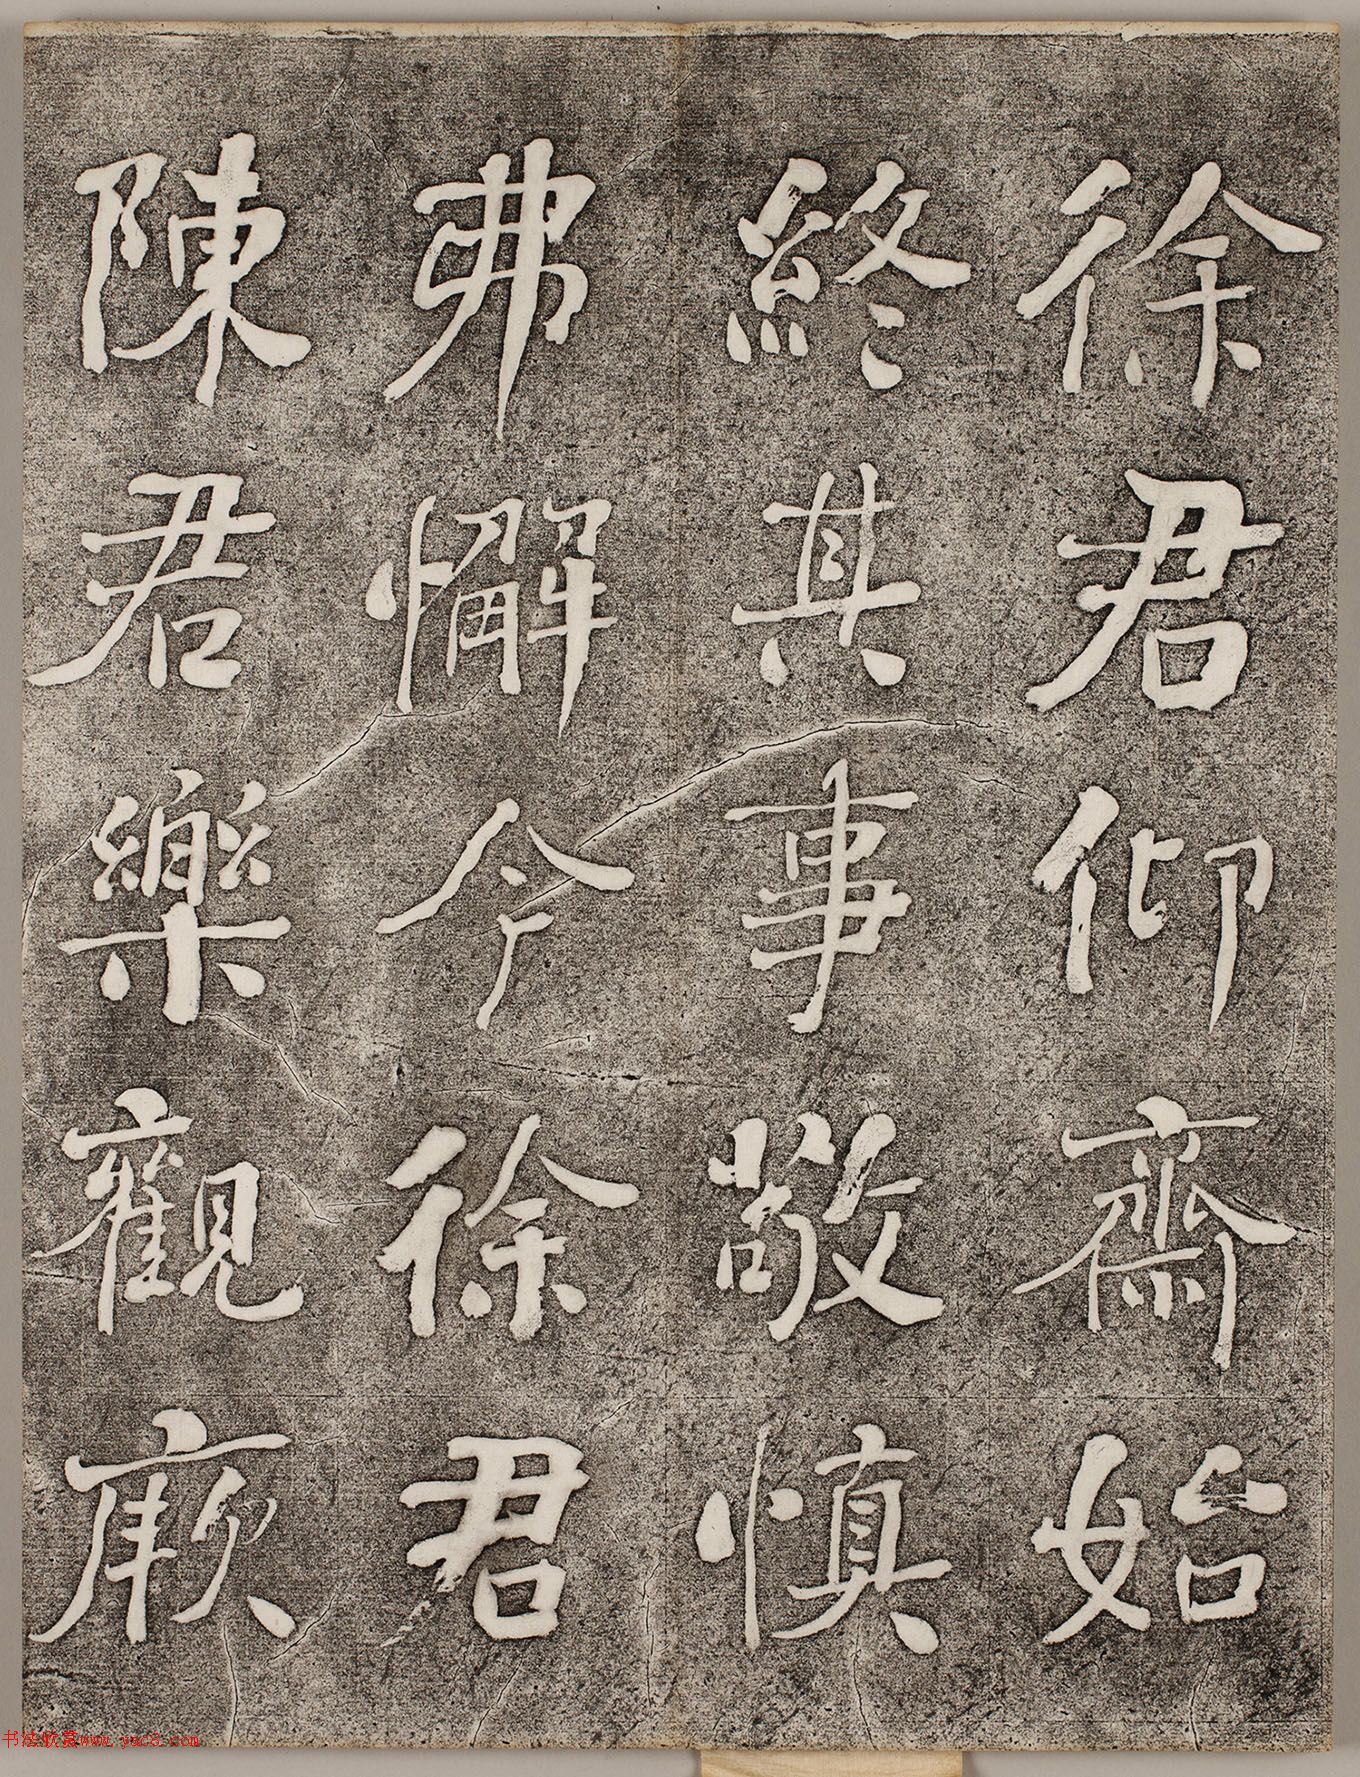 徐君仰齋始
終其事敬慎
弗懈今徐君
陳君樂觀厥
书法欣赏www.yac8.com